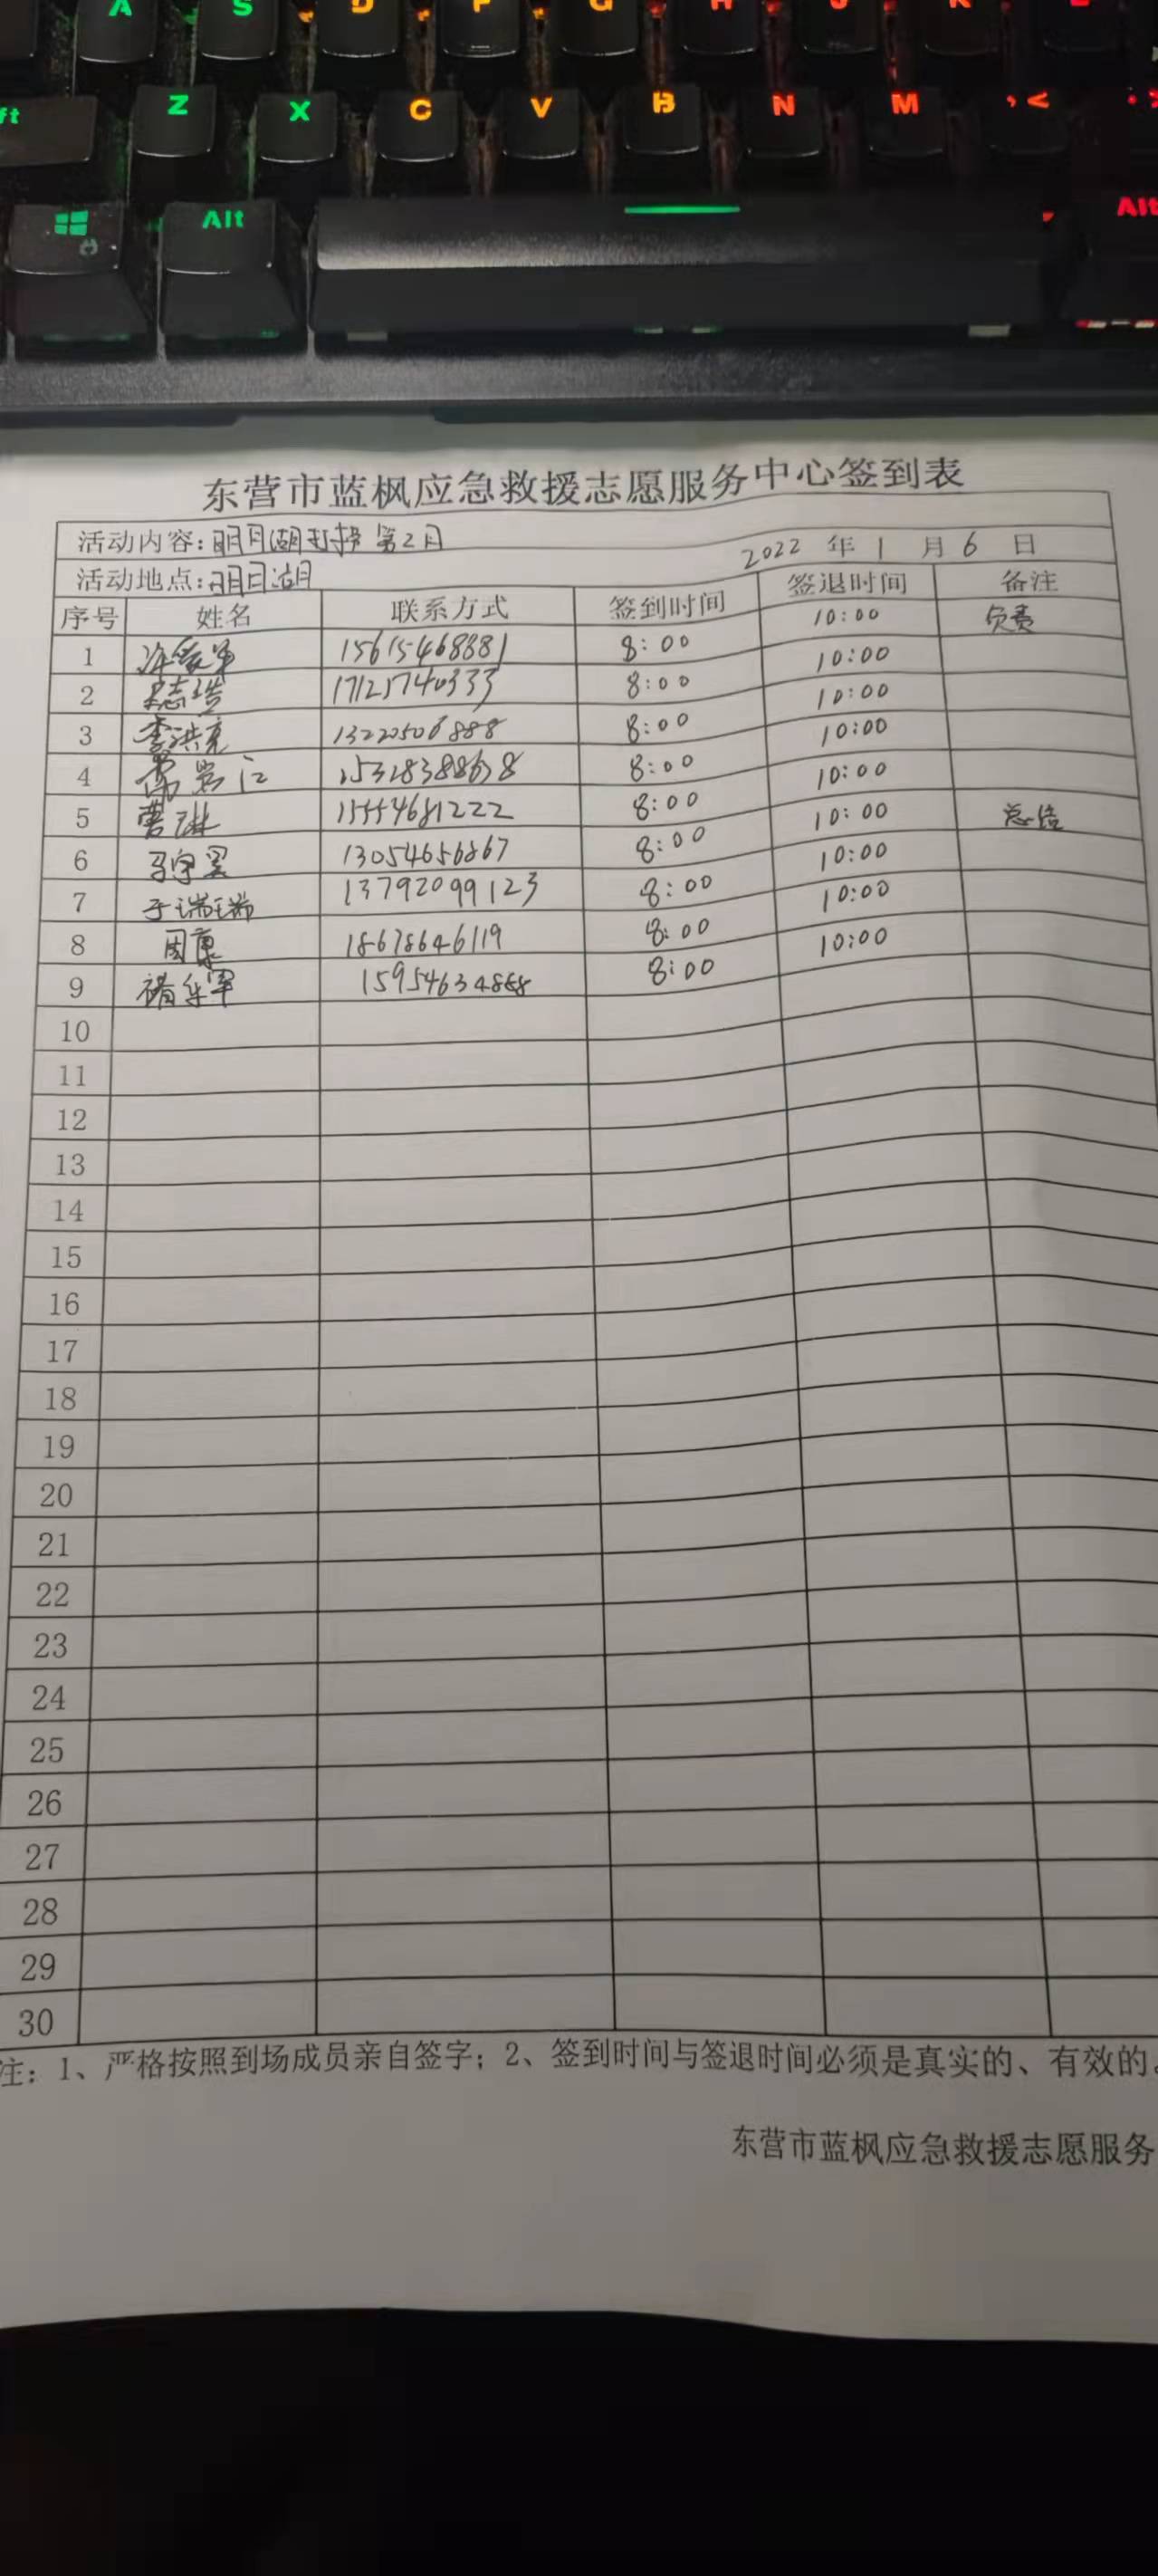 A S D F G H J K L
ft Z X C V B N M , <
Alt Alt
东营市蓝枫应急救援志愿服务中心签到表
活动内容: 明月湖打捞 第2日 2022 年 1 月 6 日
活动地点: 明月湖
序号 姓名 联系方式 签到时间 签退时间 备注
1 15615468881 8:00 10:00 负责
2 17125740333 8:00 10:00
3 李洪亮 13220506888 8:00 10:00
4 15318388678 8:00 10:00
5 曹琳 15554681222 8:00 10:00
6 马宇昊 13054656867 8:00 10:00 总结
7 于瑞瑞 13792099123 8:00 10:00
8 周康 18678646119 8:00 10:00
9 褚乐军 15954634888 8:00 10:00
10
11
12
13
14
15
16
17
18
19
20
21
22
23
24
25
26
27
28
29
30
注: 1、严格按照到场成员亲自签字; 2、签到时间与签退时间必须是真实的、有效的。
东营市蓝枫应急救援志愿服务